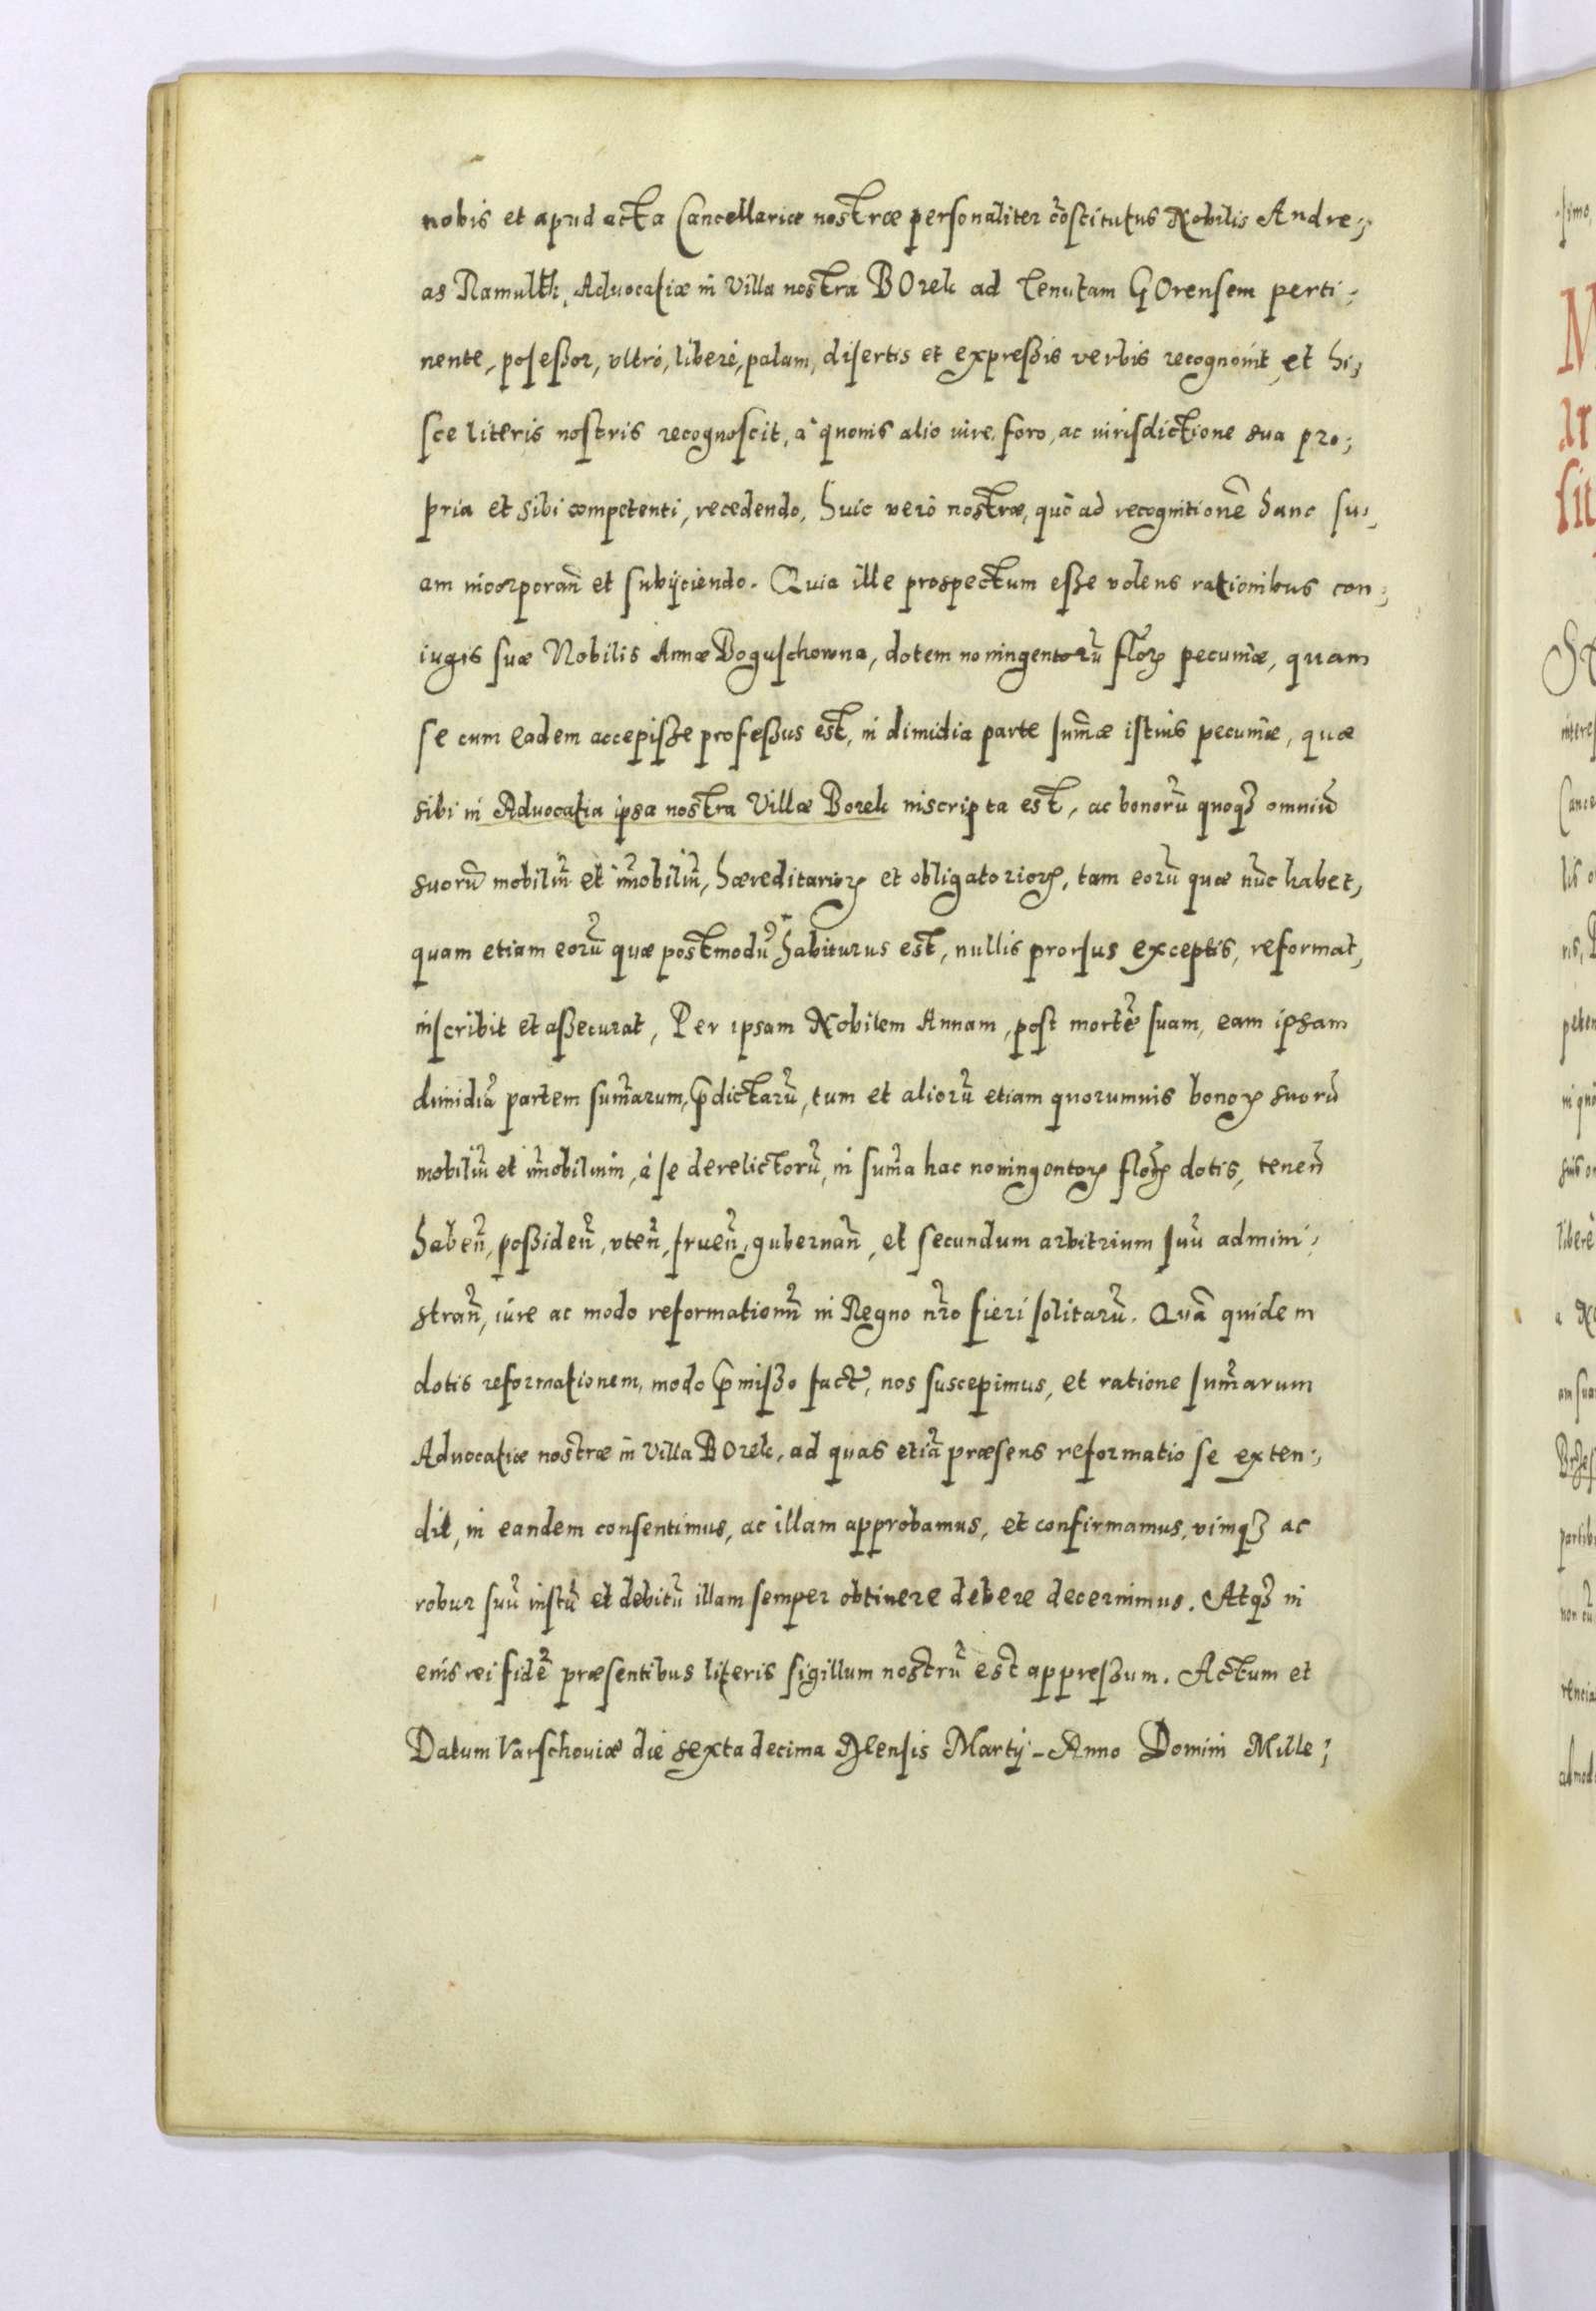 nobis et apud acta Cancellariæ nostræ personaliter cõstitutus Nobilis Andre;
as Ramulth, Advocatiæ in Villa nostra BOrek ad tenutam GOrensem perti;
nente, poseßor, vltrò, liberè, palam, disertis et expreßis verbis recognouit, et hi;
sce literis nostris recognoscit, à quouis alio iure, foro, ac iurisdictione sua pro;
pria et sibi competenti, recedendo, huic verò nostræ, quò ad recognitionẽ hanc su;
am incorporañ et subijciendo. Quia ille prospectum eße volens rationibus con;
iugis suæ Nobilis Annæ Boguschowna, dotem noningentorũ floꝝ pecuniæ, quam
se cum eadem accepiße profeßus est, in dimidia parte sum̃æ istius pecuniæ, quæ
sibi in Advocatia ipsa nostra Villæ Borek inscripta est, ac bonorũ quoqꝫ omniũ
suorũ mobiliũ et im̃obiliũ, hæreditarioꝝ et obligatorioꝝ, tam eorũ quæ nũc habet,
quam etiam eorũ quæ postmodũ habiturus est, nullis prorsus exceptis, reformat,
inscribit et aßecurat, Per ipsam Nobilem Annam, post mortẽ suam, eam ipsam
dimidiã partem sum̃arum, p̃dictarũ, tum et aliorũ etiam quorumuis bonoꝝ suorũ
mobiliũ et im̃obilium, à se derelictorũ, in sum̃a hac noningentoꝝ floꝝ dotis, teneñ
habeñ, poßideñ, vteñ, frueñ, gubernañ, et secundum arbitrium suũ admini;
strañ, iure ac modo reformationũ in Regno nr̃o fieri solitarũ. Quã quidem
dotis reformationem, modo p̃mißo fact, nos suscepimus, et ratione sum̃arum
Advocatiæ nostræ in Villa BOrek, ad quas etiã præsens reformatio se exten;
dit, in eandem consentimus, ac illam approbamus, et confirmamus, vimqꝫ ac
robur suũ iustũ et debitũ illam semper obtinere debere decernimus. Atqꝫ in
eius rei fidẽ præsentibus literis sigillum nostrũ est appreßum. Actum et
Datum Varschouiæ die sexta decima Mensis Martij - Anno Domini Mille;